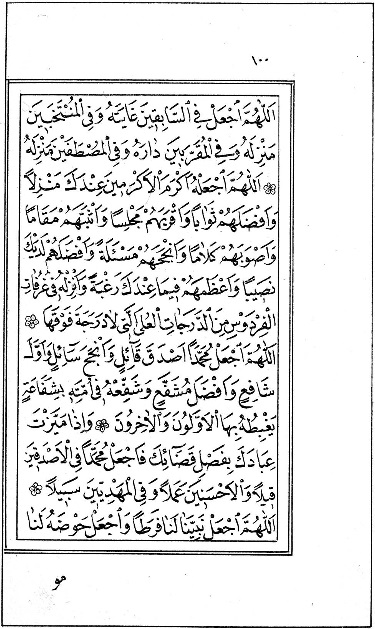 ١٠٠
اَللّٰهُمَّ اجْعَلْ فِي السَّابِقِينَ غَايَتَهُ وَفِي الْمُنْتَخَبِينَ
مَنْزِلَهُ وَفِي الْمُقَرَّبِينَ دَارَهُ وَفِي الْمُصْطَفَيْنَ مَنْزِلَهُ
۞ اَللّٰهُمَّ اجْعَلْهُ أَكْرَمَ الْأَكْرَمِينَ عِنْدَكَ مَنْزِلًا
وَأَفْضَلَهُمْ ثَوَابًا وَأَقْرَبَهُمْ مَجْلِسًا وَأَثْبَتَهُمْ مَقَامًا
وَأَصْوَبَهُمْ كَلَامًا وَأَنْجَحَهُمْ مَسْئَلَةً وَأَفْضَلَهُمْ لَدَيْكَ
نَصِيبًا وَأَعْظَمَهُمْ فِيمَا عِنْدَكَ رَغْبَةً وَأَنْزِلْهُ فِي غُرُفَاتِ
الْفِرْدَوْسِ مِنَ الدَّرَجَاتِ الْعُلَى الَّتِي لَا دَرَجَةَ فَوْقَهَا ۞
اَللّٰهُمَّ اجْعَلْ مُحَمَّدًا أَصْدَقَ قَائِلٍ وَأَنْجَحَ سَائِلٍ وَأَوَّلَ
شَافِعٍ وَأَفْضَلَ مُشَفَّعٍ وَشَفِّعْهُ فِي أُمَّتِهِ بِشَفَاعَةٍ
يَغْبِطُهُ بِهَا الْأَوَّلُونَ وَالْآخِرُونَ ۞ وَإِذَا مَيَّزْتَ
عِبَادَكَ بِفَصْلِ قَضَائِكَ فَاجْعَلْ مُحَمَّدًا فِي الْأَصْدَقِينَ
قِيلًا وَالْأَحْسَنِينَ عَمَلًا وَفِي الْمَهْدِيِّينَ سَبِيلًا ۞
اَللّٰهُمَّ اجْعَلْ نَبِيَّنَا لَنَا فَرَطًا وَاجْعَلْ حَوْضَهُ لَنَا
مو